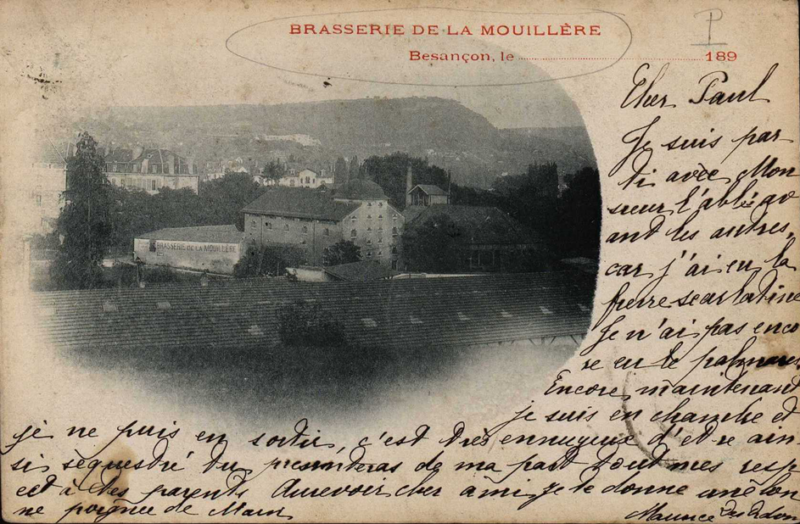 BRASSERIE DE LA MOUILLÈRE
Besançon, le 189
P
BRASSERIE DE LA MOUILLÈRE
Cher Paul
Je suis par
ti avec Mon
sieur l'abbé av
ant les autres,
car j'ai eu la
fievre scarlatine
Je n'ai pas enco
re eu le palmares
Encore maintenant
je suis en chambre et
je ne puis en sortir, c'est très ennuyeux d'et re ain
si sequestré Tu presenteras de ma part tout mes resp
ect à tes parents Aurevoir cher ami Je te donne une bon
ne poignée de Main
Maurice